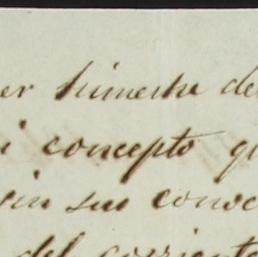 er trimestre de
i concepto qu
in sus conoc
del corriente